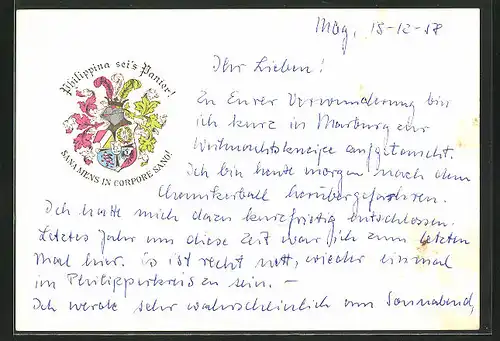 Mbg, 18-12-58
Philippina sei's Panier!
SANA MENS IN CORPORE SANO!
Ihr Lieben!
Zu Eurer Verwunderung bin
ich kurz in Marburg zur
Weihnachtskneipe aufgetaucht.
Ich bin heute morgen nach dem
Chemikerball herübergefahren.
Ich hatte mich dazu kurzfristig entschlossen.
Letztes Jahr um diese Zeit war ich zum letzten
Mal hier. Es ist recht nett, wieder einmal
im Philipperkreis zu sein. –
Ich werde sehr wahrscheinlich am Sonnabend,